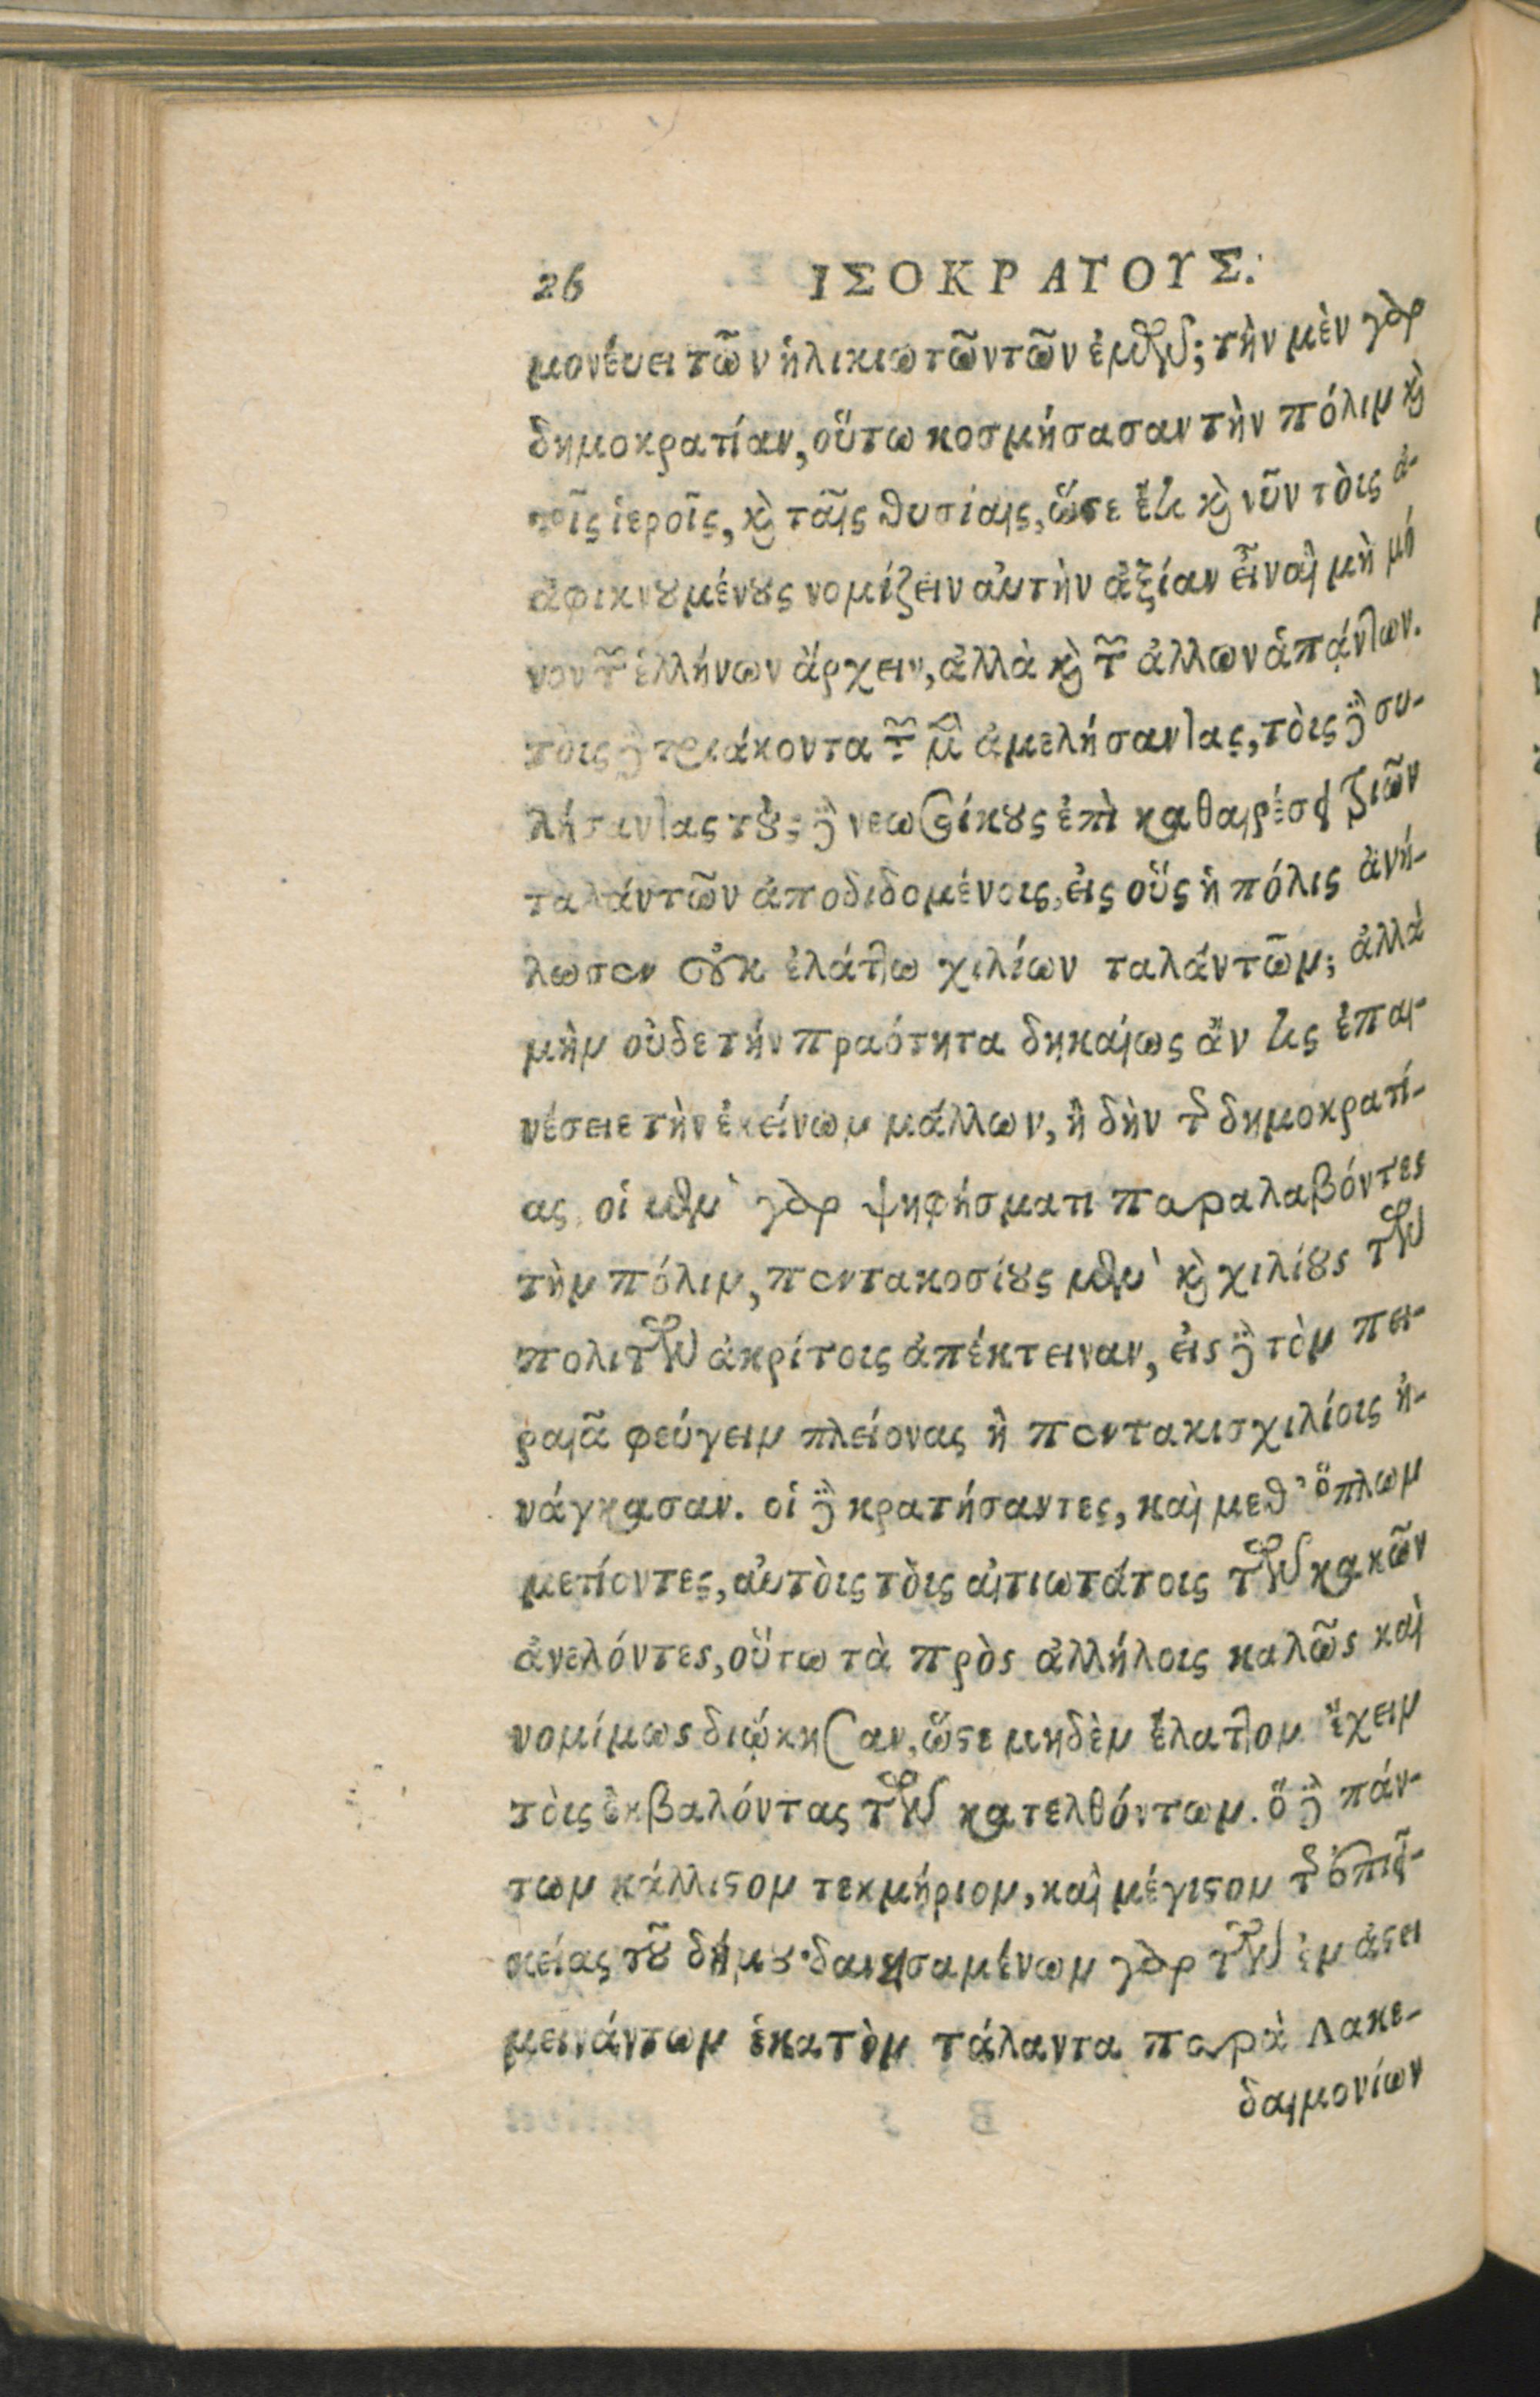 26 ΙΣΟΚΡΑΤΟΥΣ.
μονέυει τῶν ἡλικιωτῶντῶν ἐμῶν; τὴν μὲν γὰρ
δημοκρατίαν, οὕτω κοσμήσασαν τὴν πόλιμ καὶ
τοῖς ἱεροῖς, καὶ ταῖς θυσίαις, ὥστε ἔτι καὶ νῦν τὸις ἀ-
ἀφικνουμένους νομίζειν ἀυτὴν ἀξίαν εἶναι μὴ μό
νον τῶν ἑλλήνων ἄρχειν, ἀλλὰ καὶ τῶν ἀλλων ἁπάντων.
τὸις δὲ τριάκοντα τῶν μὲν ἀμελήσαντας, τὸις δὲ συ-
λήσαντας τοὺς δὲ νεωσοίκους ἐπὶ καθαιρέσει τριῶν
ταλάντῶν ἀποδιδομένοις, ἐις οὓς ἡ πόλις ἀνή-
λωσεν οὐκ ἐλάττω χιλίων ταλάντῶμ; ἀλλὰ
μὴμ οὐδε τήν πραότητα δηκαίως ἄν τις ἐπαι-
νέσειε τὴν ἐκείνωμ μάλλων, ἢ δὴν τῆς δημοκρατί-
ας, οἱ μὲν γὰρ ψηφήσματι παραλαβόντες
τὴμ πόλιμ, πεντακοσίους μὲν καὶ χιλίους τῶν
πολιτῶν ἀκρίτοις ἀπέκτειναν, ἐις δὲ τὸμ πει-
ραιᾶ φεύγειμ πλείονας ἢ πεντακισχιλίοις ἠ-
νάγκασαν. οἱ δὲ κρατήσαντες, καὶ μεθ' ὅπλωμ
μετίοντες, ἀυτὸις τὸις ἀιτιωτάτοις τῶν κακῶν
ἀνελόντες, οὕτω τὰ πρὸς ἀλλήλοις καλῶς καὶ
νομίμως διῴκησαν, ὥστε μηδὲμ ἔλαττομ ἔχειμ
τὸις ἐκβαλόντας τῶν κατελθόντωμ. ὅ δὲ πάν-
τωμ κάλλιστομ τεκμήριομ, καὶ μέγιστομ τῆς ἐπιεῖ-
κείας τοῦ δήμου· δανησαμένωμ γὰρ τῶν ἐμ ἄστει
μεινάντωμ ἑκατὸμ τάλαντα παρὰ Λακε-
δαιμονίων